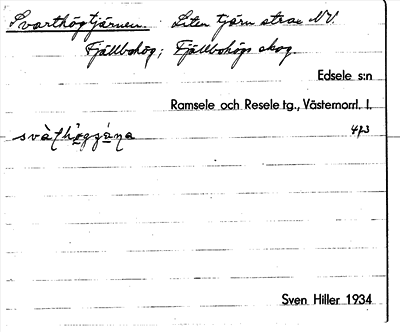 Svarthögtjärnen. Liten tjärn strax NV.
Fjällbohög; Fjällbohögs skog.
Edsele s:n
Ramsele och Resele tg., Västernorrl. l.
473
Sven Hiller 1934